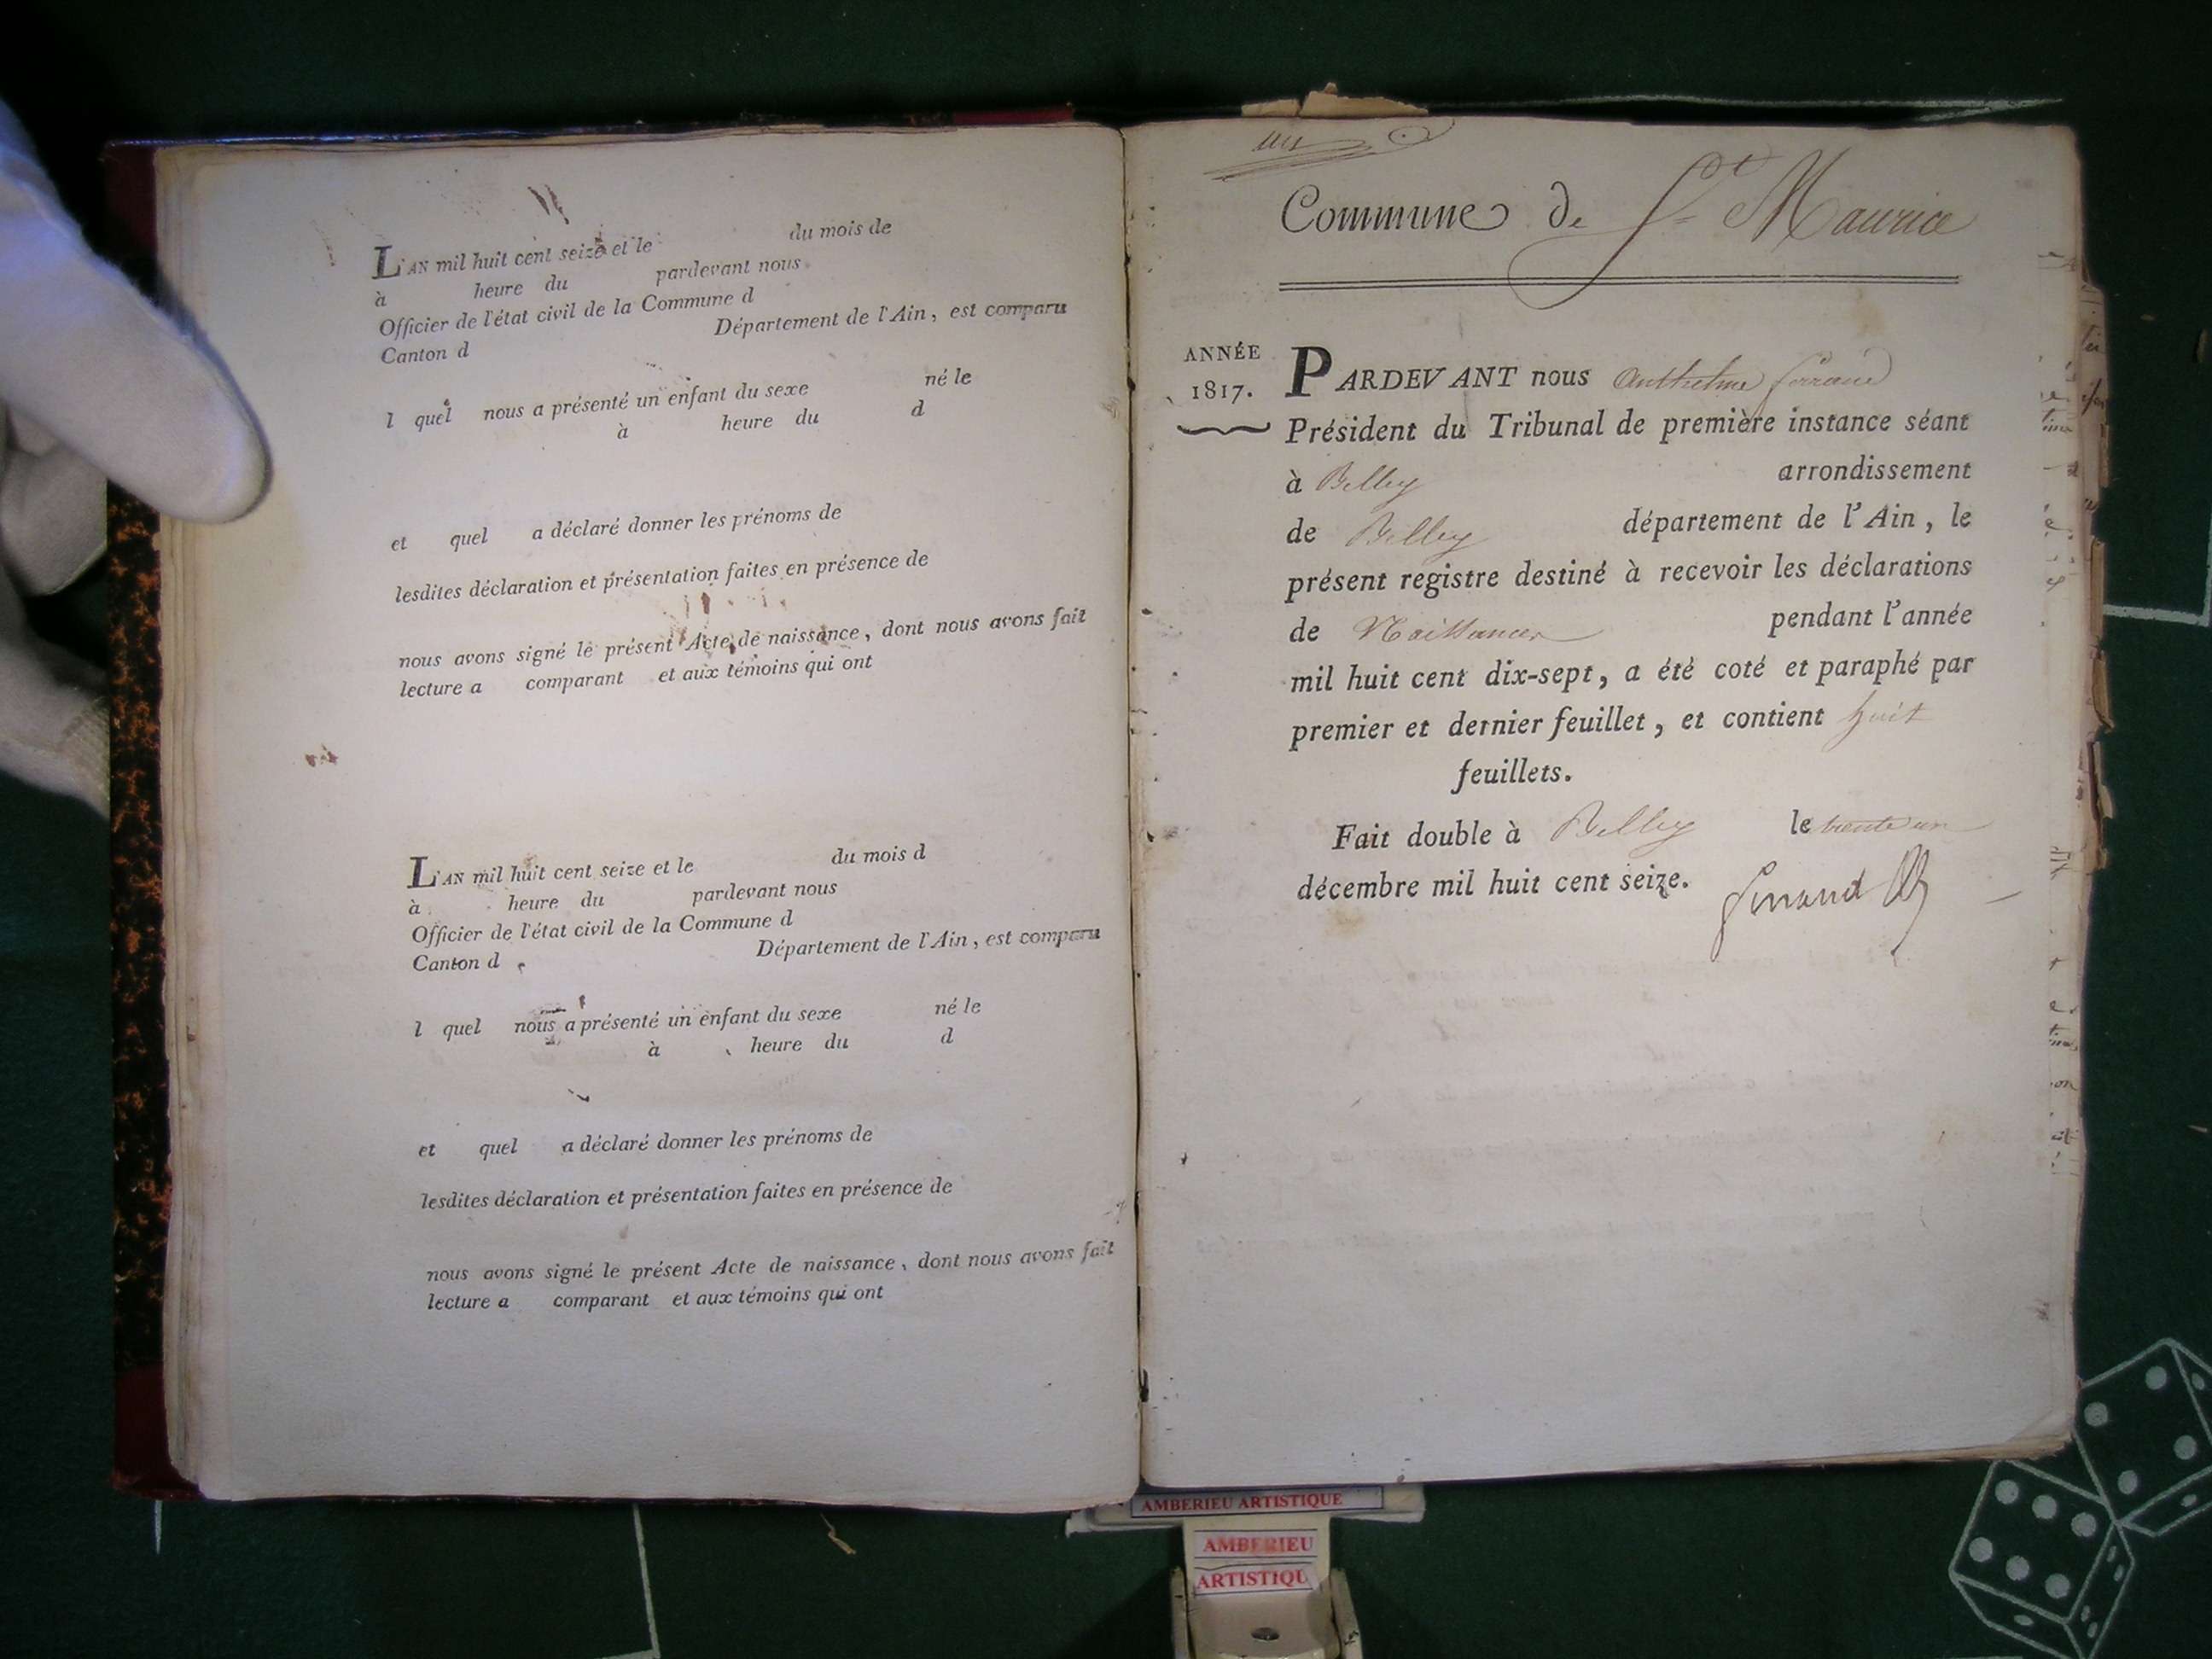 L'AN mil huit cent seize et le du mois de
à heure du pardevant nous
Officier de l'état civil de la Commune d
Canton d Département de l'Ain, est comparu
l quel nous a présenté un enfant du sexe né le
à heure du d
et quel a déclaré donner les prénoms de
lesdites déclaration et présentation faites en présence de
nous avons signé le présent Acte de naissance, dont nous avons fait
lecture a comparant et aux témoins qui ont
L'AN mil huit cent seize et le du mois d
à heure du pardevant nous
Officier de l'état civil de la Commune d
Canton d Département de l'Ain, est comparu
l quel nous a présenté un enfant du sexe né le
à heure du d
et quel a déclaré donner les prénoms de
lesdites déclaration et présentation faites en présence de
nous avons signé le présent Acte de naissance, dont nous avons fait
lecture a comparant et aux témoins qui ont
Commune de St Maurice
ANNÉE
1817.
PARDEVANT nous Anthelme ferrand
Président du Tribunal de première instance séant
à Belley arrondissement
de Belley département de l'Ain, le
présent registre destiné à recevoir les déclarations
de Naissances pendant l'année
mil huit cent dix-sept, a été coté et paraphé par
premier et dernier feuillet, et contient huit
feuillets.
Fait double à Belley le trente un
décembre mil huit cent seize.
ferrand
AMBERIEU ARTISTIQUE
AMBERIEU
ARTISTIQU